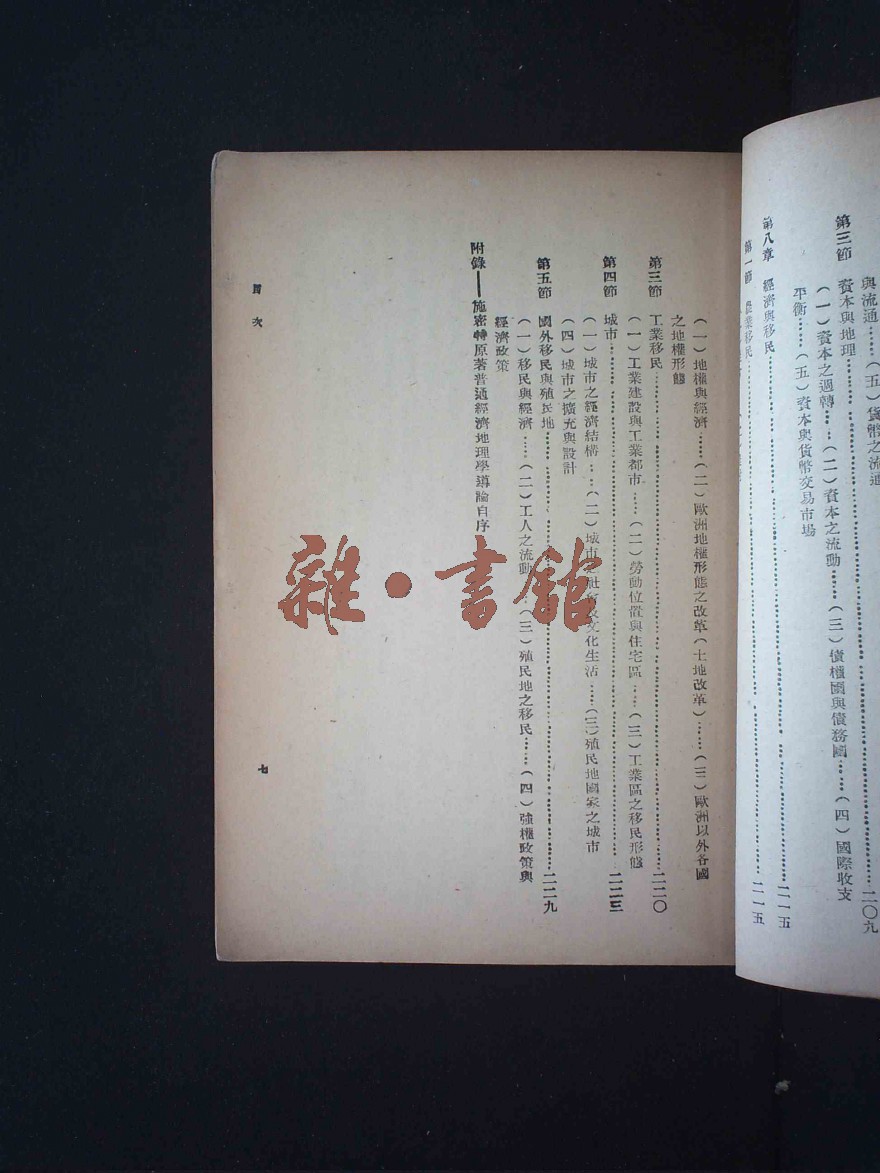 與流通……（五）貨幣之流通
第三節　資本與地理………二〇九
（一）資本之週轉……（二）資本之流動……（三）債權國與債務國……（四）國際收支
平衡……（五）資本與貨幣交易市場
第八章　經濟與移民………二一五
第一節　農業移民………二一五
（一）地權與經濟……（二）歐洲地權形態之改革（土地改革）……（三）歐洲以外各國
之地權形態
第三節　工業移民………二二〇
（一）工業建設與工業都市……（二）勞動位置與住宅區……（三）工業區之移民形態
第四節　城市………二二三
（一）城市之經濟結構……（二）城市之社會及文化生活……（三）殖民地國家之城市
（四）城市之擴充與設計
第五節　國外移民與殖民地………二二九
（一）移民與經濟……（二）工人之流動……（三）殖民地之移民……（四）強權政策與
經濟政策
附錄——施密特原著普通經濟地理學導論自序
目次
七
雜·書館